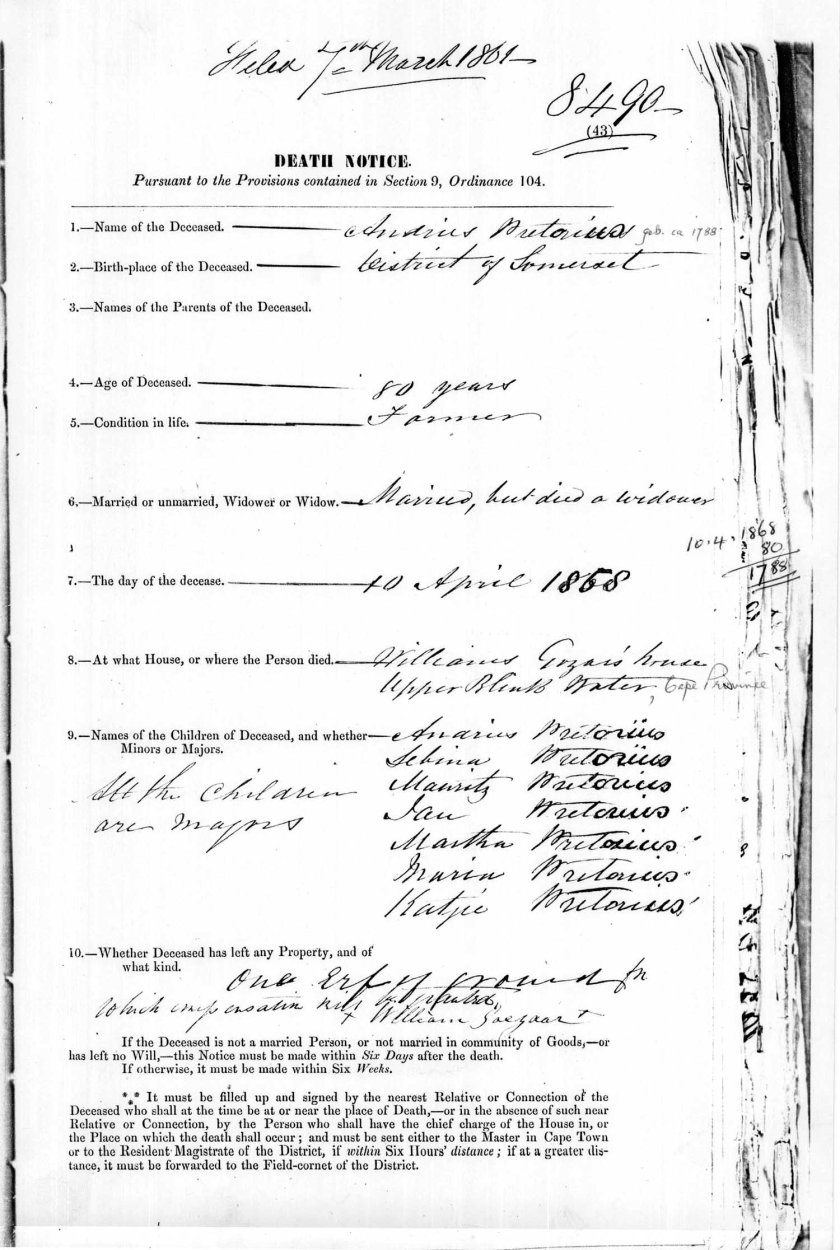 Filed 7th March 1861
8490
(43)
DEATH NOTICE.
Pursuant to the Provisions contained in Section 9, Ordinance 104.
1.—Name of the Deceased. Andries Pretorius geb. ca 1788
2.—Birth-place of the Deceased. District of Somerset
3.—Names of the Parents of the Deceased.
4.—Age of Deceased. 80 years
5.—Condition in life. Farmer
6.—Married or unmarried, Widower or Widow. Married, but died a widower
10.4.1868
80
1788
7.—The day of the decease. 10 April 1868
8.—At what House, or where the Person died. Williams house
Upper Blink Water, Cape Province
9.—Names of the Children of Deceased, and whether Minors or Majors.
Andries Pretorius
Sebina Pretorius
Mauritz Pretorius
Jan Pretorius
Martha Pretorius
Maria Pretorius
Katjie Pretorius
All the Children
are Majors
10.—Whether Deceased has left any Property, and of
what kind.
One Erf of ground for
which compensation William
If the Deceased is not a married Person, or not married in community of Goods,—or
has left no Will,—this Notice must be made within Six Days after the death.
If otherwise, it must be made within Six Weeks.
*⁎* It must be filled up and signed by the nearest Relative or Connection of the
Deceased who shall at the time be at or near the place of Death,—or in the absence of such near
Relative or Connection, by the Person who shall have the chief charge of the House in, or
the Place on which the death shall occur; and must be sent either to the Master in Cape Town
or to the Resident Magistrate of the District, if within Six Hours' distance; if at a greater dis-
tance, it must be forwarded to the Field-cornet of the District.